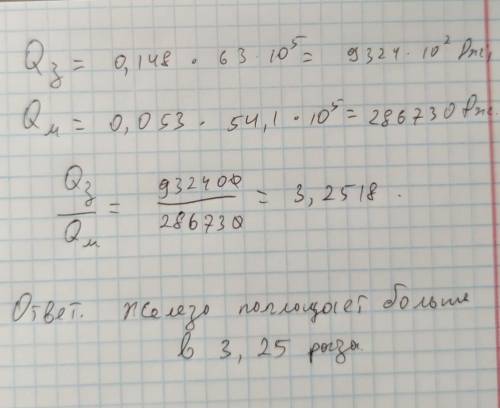 Qз = 0,148 · 63 · 10⁵ = 9324 · 10² Дж,
Qм = 0,053 · 54,1 · 10⁵ = 286730 Дж.
Qз/Qм = 932400/286730 = 3,2518.
Ответ. Железо поглощает больше
в 3,25 раза